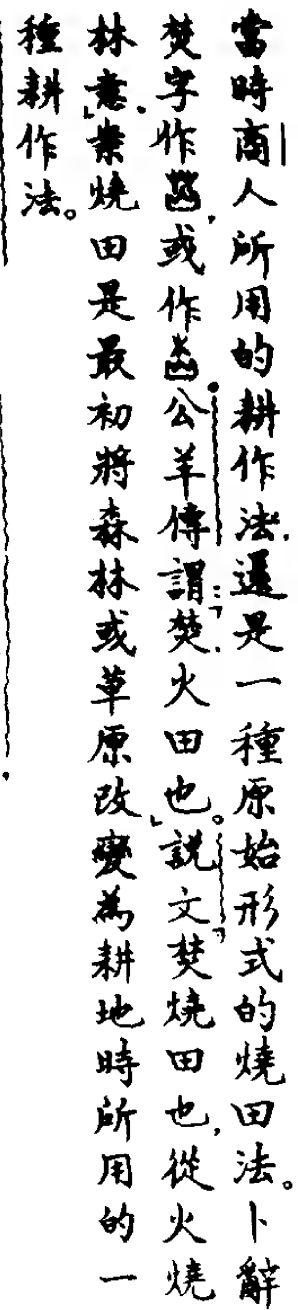 當時商人所用的耕作法，還是一種原始形式的燒田法。卜辭
焚字作，或作公羊傳謂：「焚，火田也。」說文「焚燒田也，從火燒
林意」。業燒田是最初將森林或草原改變為耕地時所用的一
種耕作法。